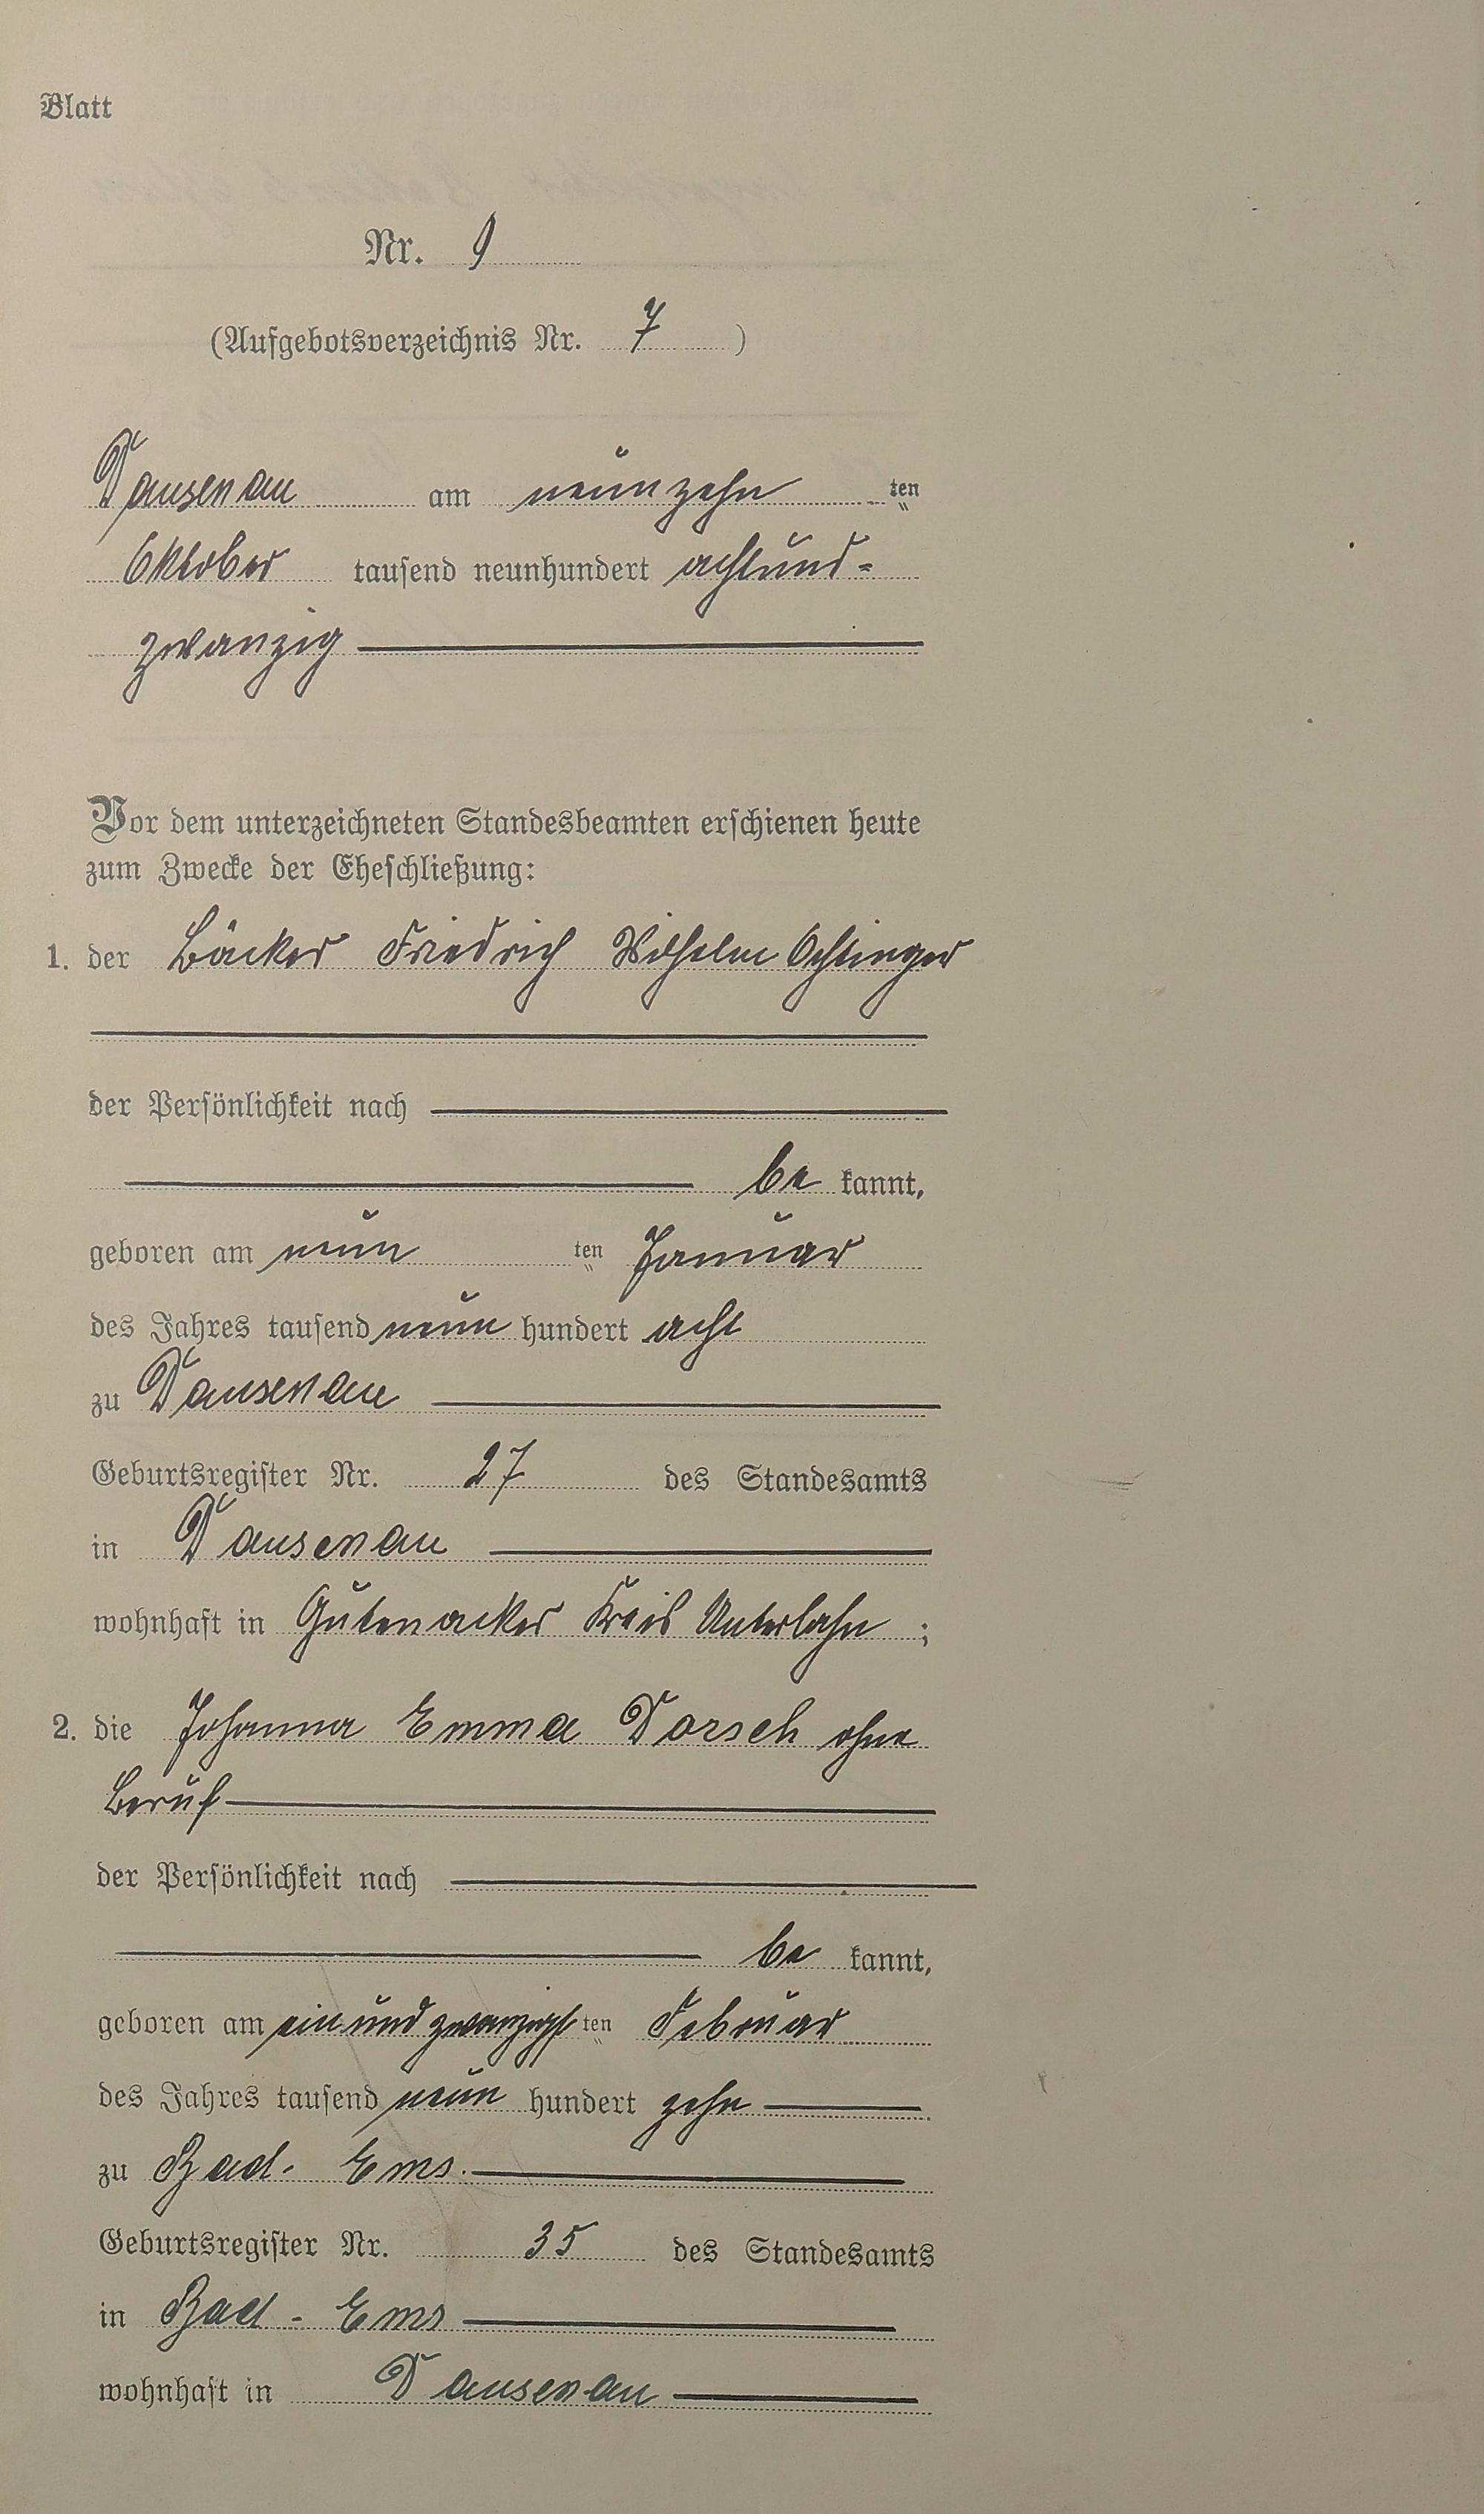 Blatt
Nr. 9
(Aufgebotsverzeichnis Nr. 7 )
Dausenau am neunzehn ten
Oktober tausend neunhundert achtund-
zwanzig
Vor dem unterzeichneten Standesbeamten erschienen heute
zum Zwecke der Eheschließung:
1. der Bäcker Friedrich Wilhelm Ochtinger
der Persönlichkeit nach
be kannt,
geboren am neun ten Januar
des Jahres tausend neun hundert acht
zu Dausenau
Geburtsregister Nr. 27 des Standesamts
in Dausenau
wohnhaft in Gutenacker Kreis Unterlahn ;
2. die Johanna Emma Dorsch ohne
Beruf
der Persönlichkeit nach
be kannt,
geboren am einundzwanzigst ten Februar
des Jahres tausend neun hundert zehn
zu Bad-Ems.
Geburtsregister Nr. 35 des Standesamts
in Bad-Ems
wohnhaft in Dausenau